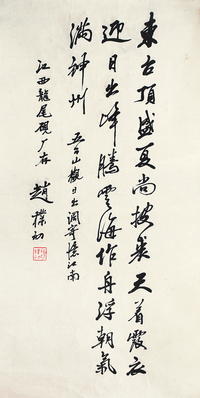 東台頂盛夏尚披裘天着霞衣
迎日出峰騰雲海作舟浮朝氣
滿神州 五台山觀日出調寄憶江南
江西龍尾硯厂存 趙樸初